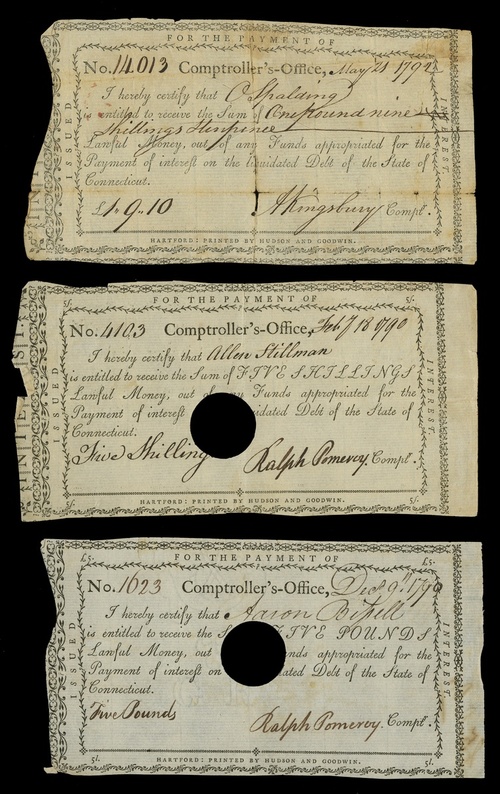 FOR THE PAYMENT OF
No. 14013 Comptroller's-Office, May 21 1792
I hereby certify that C Spalding
is entitled to receive the Sum of One pound nine
Shillings Tenpence
Lawful Money, out of any Funds appropriated for the
Payment of interest on the liquidated Debt of the State of
Connecticut.
£1 " 9 . 10 AKingsbury Compt.
HARTFORD: PRINTED BY HUDSON AND GOODWIN.
ISSUED
INTEREST.
5/. FOR THE PAYMENT OF 5/.
No. 4103 Comptroller's-Office, Feby 18 1790
I hereby certify that Allen Stillman
is entitled to receive the Sum of FIVE SHILLINGS
Lawful Money, out of any Funds appropriated for the
Payment of interest idated Debt of the State of
Connecticut.
Five Shilling Ralph Pomeroy. Compt.
HARTFORD: PRINTED BY HUDSON AND GOODWIN.
5/. 5/.
ISSUED
INTEREST.
£5. FOR THE PAYMENT OF £5.
No. 1623 Comptroller's-Office, Decr 9th 1790
I hereby certify that Aaron Bissell
is entitled to receive the S FIVE POUNDS
Lawful Money, out nds appropriated for the
Payment of interest on ated Debt of the State of
Connecticut.
Five Pounds Ralph Pomeroy. Compt.
HARTFORD: PRINTED BY HUDSON AND GOODWIN.
5l. 5l.
ISSUED
INTEREST.